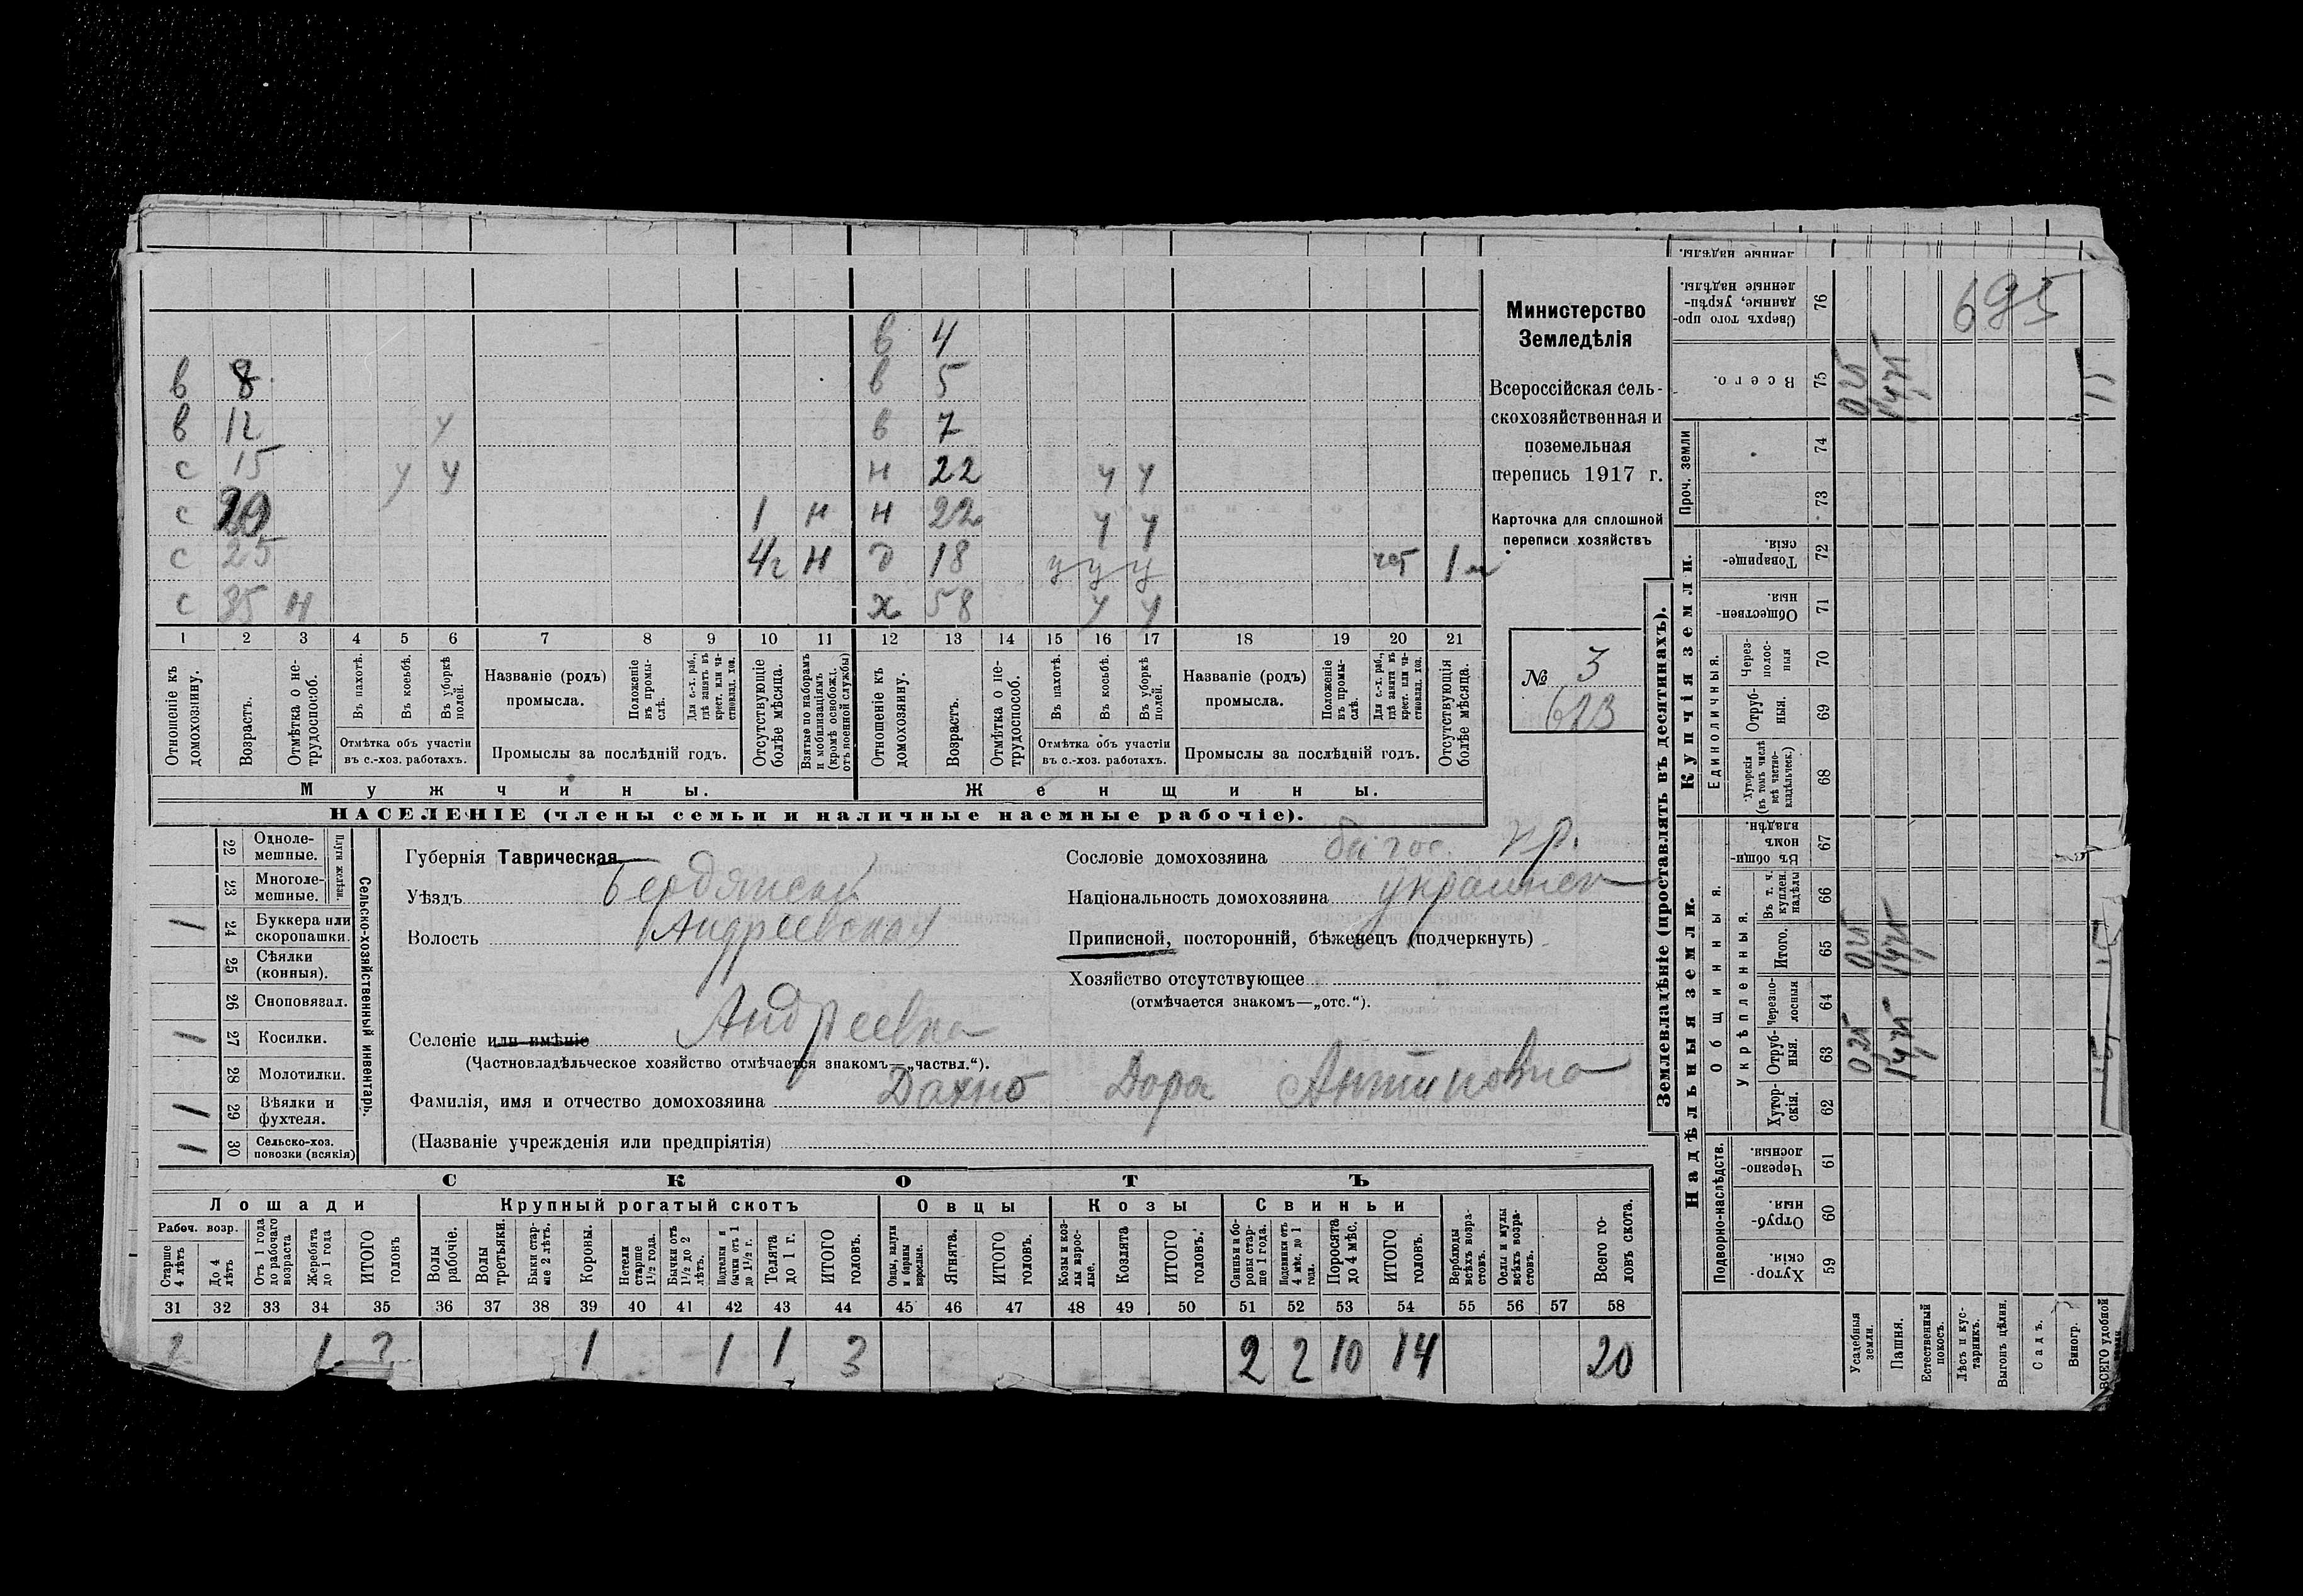 в 4
в 8 в 5
в 12 у в 7
с 15 у у н 22 у у
с 1 н н 22 у у
с 25 4г н д 18 у у у 1 м
с 35 н х 58 у у
1 2 3 4 5 6 7 8 9 10 11 12 13 14 15 16 17 18 19 20 21
Отношеніе къ домохозяину.
Возрастъ.
Отмѣтка о не-трудоспособ.
Въ пахотѣ.
Въ косьбѣ.
Въ уборкѣ полей.
Отмѣтка объ участіи въ с.-хоз. работахъ.
Названіе (родъ) промысла.
Положеніе въ промы-слѣ.
Для с.-х. раб., гдѣ занятъ въ крест. или ча-стновлад. хоз.
Промыслы за послѣдній годъ.
Отсутствующіе болѣе мѣсяца.
Взятые по наборамъ и мобилизаціямъ (кромѣ освобожд. отъ военной службы)
Отношеніе къ домохозяину.
Возрастъ.
Отмѣтка о не-трудоспособ.
Въ пахотѣ.
Въ косьбѣ.
Въ уборкѣ полей.
Отмѣтка объ участіи въ с.-хоз. работахъ.
Названіе (родъ) промысла.
Положеніе въ промы-слѣ.
Для с.-х. раб., гдѣ занята въ крест. или ча-стновлад. хоз.
Промыслы за послѣдній годъ.
Отсутствующія болѣе мѣсяца.
Мужчины. Женщины.
НАСЕЛЕНІЕ (члены семьи и наличные наемные рабочіе).
Министерство
Земледѣлія
Всероссійская сель-
скохозяйственная и
поземельная
перепись 1917 г.
Карточка для сплошной
переписи хозяйствъ
№ 3
613
Сельско-хозяйственный инвентарь.
Плуги желѣзн.
22 Одноле-мешные.
23 Многоле-мешные.
1 24 Буккера или скоропашки.
25 Сѣялки (конныя).
26 Сноповязал.
1 27 Косилки.
28 Молотилки.
1 29 Вѣялки и фухтеля.
1 30 Сельско-хоз. повозки (всякія)
Губернія Таврическая
Уѣздъ Бердянскій
Волость Андреевская
Селеніе или имѣніе Андреевка
(Частновладѣльческое хозяйство отмѣчается знакомъ—„частвл.“).
Фамилія, имя и отчество домохозяина Дахно Дора Антиповна
(Названіе учрежденія или предпріятія)
Сословіе домохозяина
Національность домохозяина украинск
Приписной, посторонній, бѣженецъ (подчеркнуть)
Хозяйство отсутствующее
(отмѣчается знакомъ—„отс.“).
СКОТЪ
Лошади Крупный рогатый скотъ Овцы Козы Свиньи
Рабоч. возр.
Старше 4 лѣтъ
До 4 лѣтъ
Отъ 1 года до рабочаго возраста
Жеребята до 1 года
ИТОГО головъ
Волы рабочіе.
Волы третьяки.
Быки стар-ше 2 лѣтъ.
Коровы.
Нетели старше 1½ года.
Бычки отъ 1½ до 2 лѣтъ.
Подтелки и бычки отъ 1 до 1½ г.
Телята до 1 г.
ИТОГО головъ.
Овцы, валухи и бараны взрослые.
Ягнята.
ИТОГО головъ.
Козы и коз-лы взрос-лые.
Козлята
ИТОГО головъ.
Свиньи и бо-ровы стар-ше 1 года.
Подсвинки отъ 4 мѣс. до 1 года.
Поросята до 4 мѣс.
ИТОГО головъ.
Верблюды всѣхъ возра-стовъ.
Ослы и мулы всѣхъ возра-стовъ.
Всего го-ловъ скота.
31 32 33 34 35 36 37 38 39 40 41 42 43 44 45 46 47 48 49 50 51 52 53 54 55 56 57 58
1 1 1 1 3 2 2 10 14 20
Землевладѣніе (проставлять въ десятинахъ).
Надѣльныя земли. Купчія земли.
Подворно-наслѣдств.
Общинныя.
Укрѣпленныя.
Единоличныя.
Проч. земли
Хутор-скія. 59
Отруб-ныя. 60
Черезпо-лосныя. 61
Хутор-скія. 62
Отруб-ныя. 63
Черезпо-лосныя 64
Итого. 65
Въ т. ч. куплен. надѣлы 66
Въ общин-номъ владѣн. 67
Хуторскія (въ томъ числѣ всѣ частно-владѣльческ.) 68
Отруб-ныя. 69
Через-полос-ныя 70
Обществен-ныя. 71
Товарище-скія. 72
73
74
Всего. 75
Сверхъ того про-данные, укрѣп-ленные надѣлы. 76
ленные надѣлы.
695
Усадебныя земли.
Пашня.
Естественный покосъ.
Лѣсъ и кус-тарникъ.
Выгонъ цѣлин.
Садъ.
Виногр.
ВСЕГО удобной
025 025 025
1475 1475 1475
15